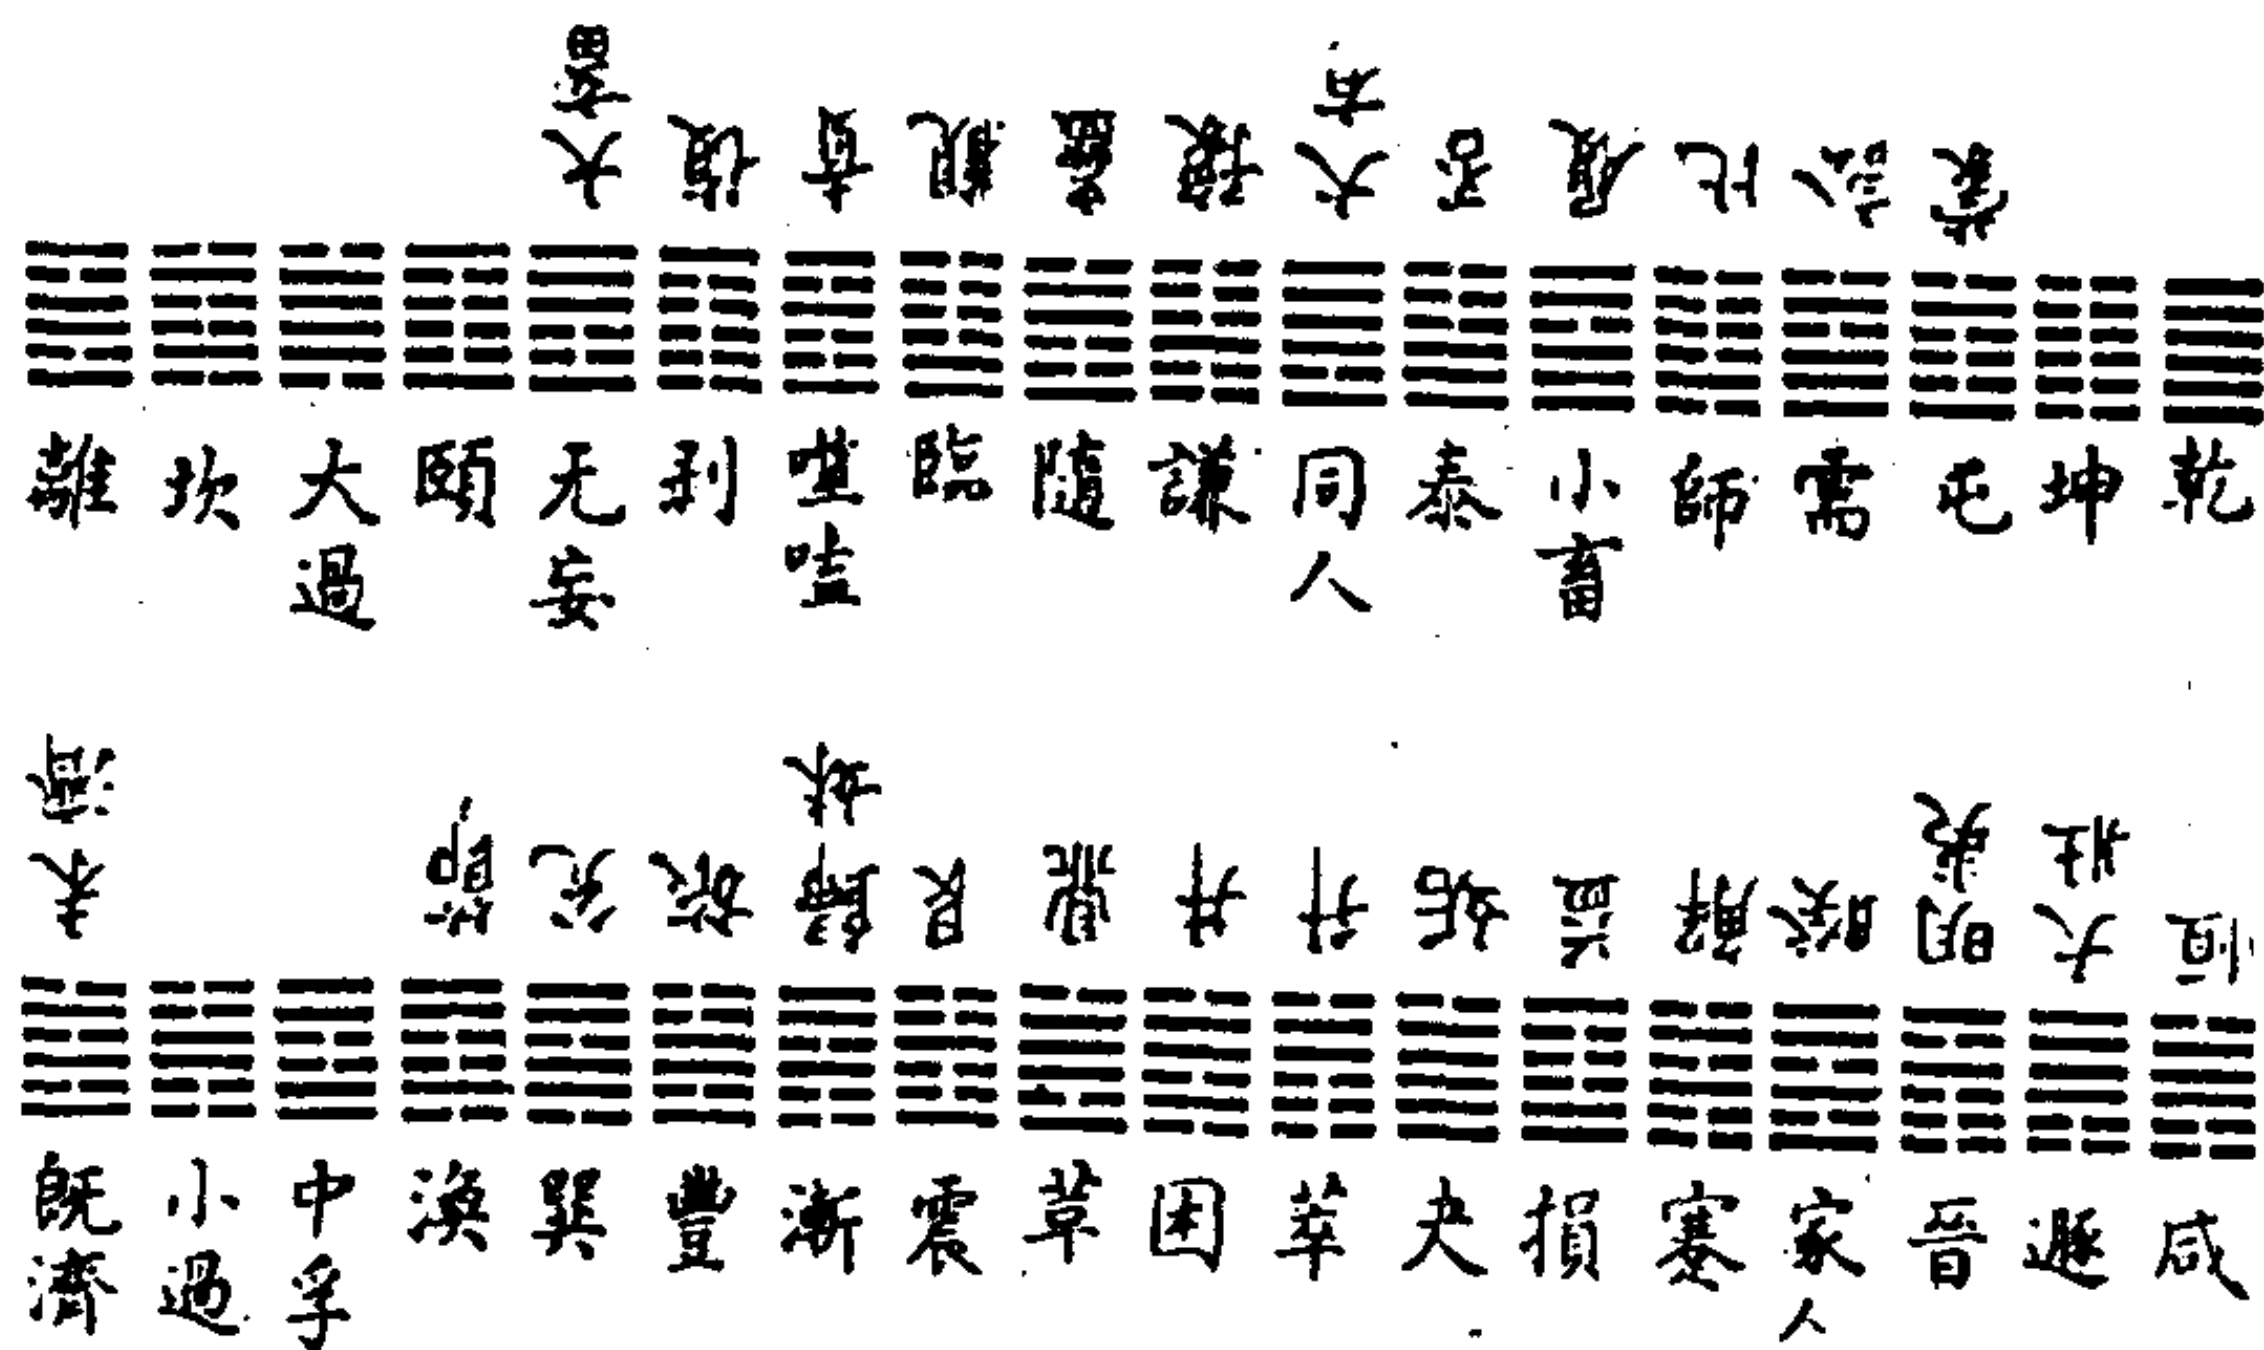 蒙 訟 比 履 否 大有 豫 蠱 觀 賁 復 大畜
乾 坤 屯 需 師 小畜 泰 同人 謙 隨 臨 噬嗑 剥 无妄 頤 大過 坎 離
恒 大壯 明夷 睽 解 益 姤 升 井 鼎 艮 歸妹 旅 兌 節 未濟
咸 遯 晉 家人 蹇 損 夬 萃 困 革 震 漸 豐 巽 渙 中孚 小過 既濟